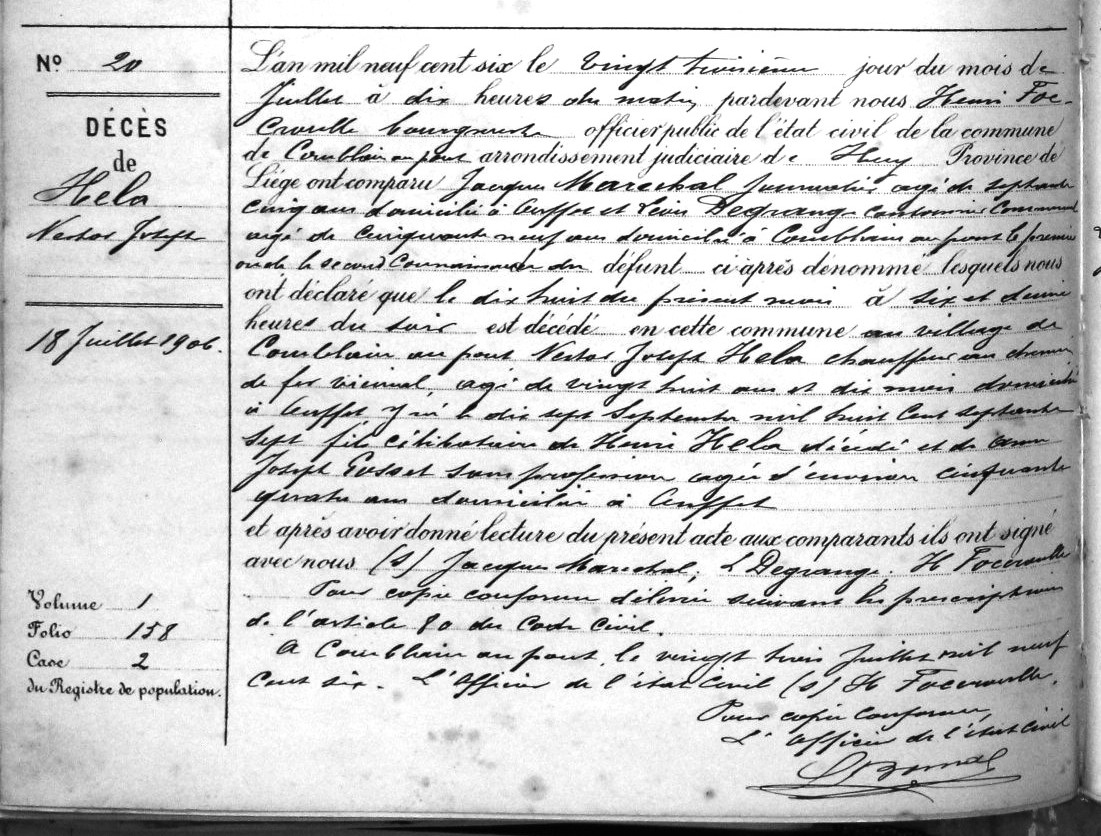 Nº 20
DÉCÈS
de
Hela
Nestor Joseph
18 Juillet 1906.
Volume 1
Folio 158
Case 2
du Registre de population.
L'an mil neuf cent six le vingt troisième jour du mois de
Juillet à dix heures du matin pardevant nous Henri Foc-
croulle bourgmestre officier public de l'état civil de la commune
de Comblain au pont arrondissement judiciaire de Huy Province de
Liége ont comparu Jacques Marechal Journalier agé de septante
cinq ans domicilié à Ouffet et Léon Degrange cantonnier Communal
agé de cinquante neuf ans domicilié à Comblain au pont le premier
oncle le second Connaissance du défunt ci-après dénommé lesquels nous
ont déclaré que le dix huit du présent mois à six et demie
heures du soir est décédé en cette commune au village de
Comblain au pont Nestor Joseph Hela chauffeur au chemin
de fer vicinal, agé de vingt huit ans et dix mois domicilié
à Ouffet y né le dix sept Septembre mil huit Cent septante
sept fils célibataire de Henri Hela décédé et de
Joseph Gosset sans profession agée d'environ cinquante
quatre ans domiciliée à Ouffet
et après avoir donné lecture du présent acte aux comparants ils ont signé
avec nous (s) Jacques Marechal, L Degrange. H Foccroulle
Pour copie conforme délivrée suivant les prescriptions
de l'article 80 du Code Civil.
A Comblain au pont, le vingt trois Juillet mil neuf
Cent six. L'Officier de l'état Civil (s) H Foccroulle.
Pour copie conforme,
L'Officier de l'état Civil